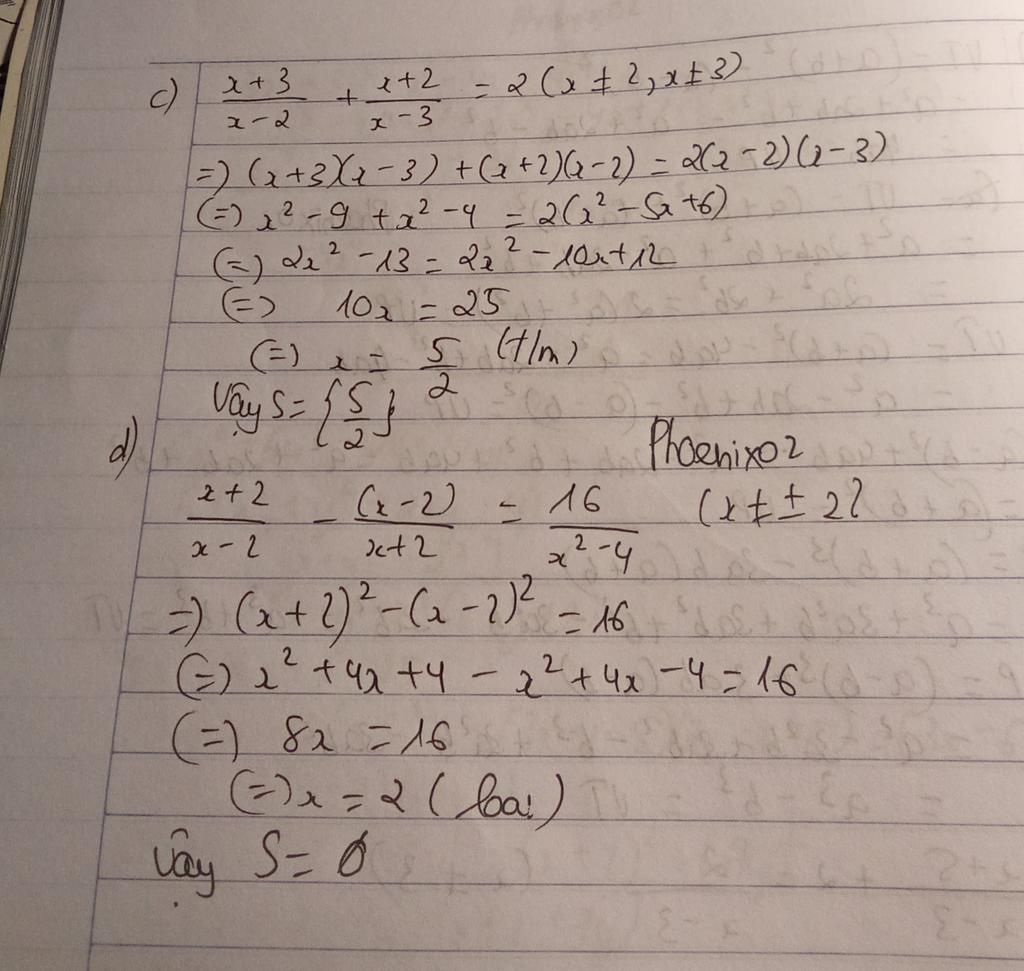 c) x+3/x-2 + x+2/x-3 = 2 (x ≠ 2, x ≠ 3)
=> (x+3)(x-3) + (x+2)(x-2) = 2(x-2)(x-3)
(=) x² - 9 + x² - 4 = 2(x² - 5x + 6)
(=) 2x² - 13 = 2x² - 10x + 12
(=) 10x = 25
(=) x = 5/2 (t/m)
Vậy S = {5/2}
d)
Phoenix02
x+2/x-2 - (x-2)/x+2 = 16/x²-4 (x ≠ ± 2)
=> (x+2)² - (x-2)² = 16
(=) x² + 4x + 4 - x² + 4x - 4 = 16
(=) 8x = 16
(=) x = 2 (loại)
Vậy S = Ø